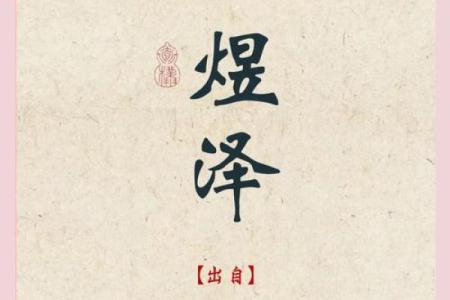 煜
泽
【出自】